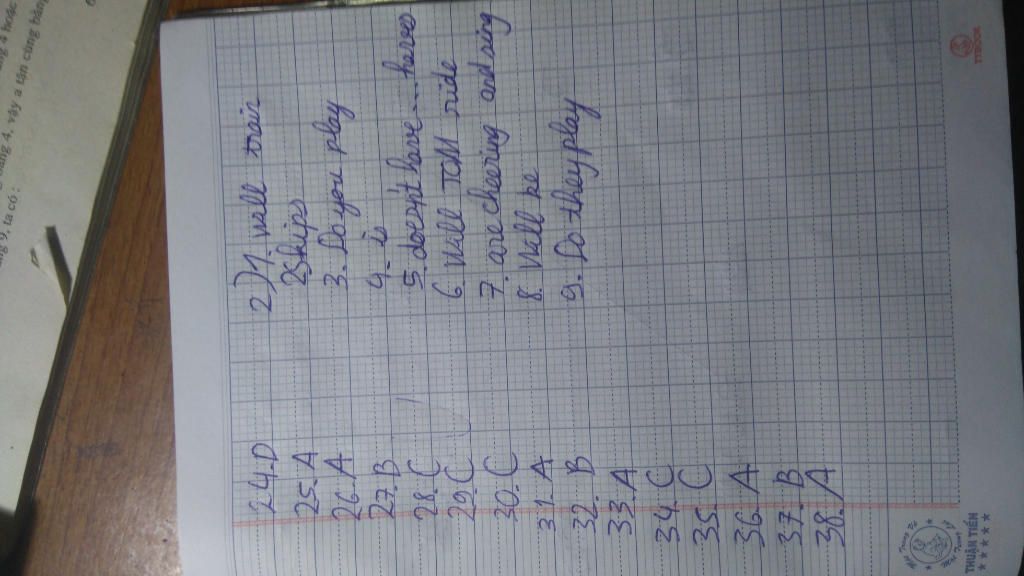 24. D
25. A
26. A
27. B
28. C
29. C
30. C
31. A
32. B
33. A
34. C
35. C
36. A
37. B
38. A
2) 1. will train
2 Skips
3. Do you play
4. is
5. doesn't have ... haves
6. Will TOM ride
7. are cheering and sing
8. Will be
9. Do they play
THUẬN TIẾN
9, ta có :
4, vậy a tận cùng bằng